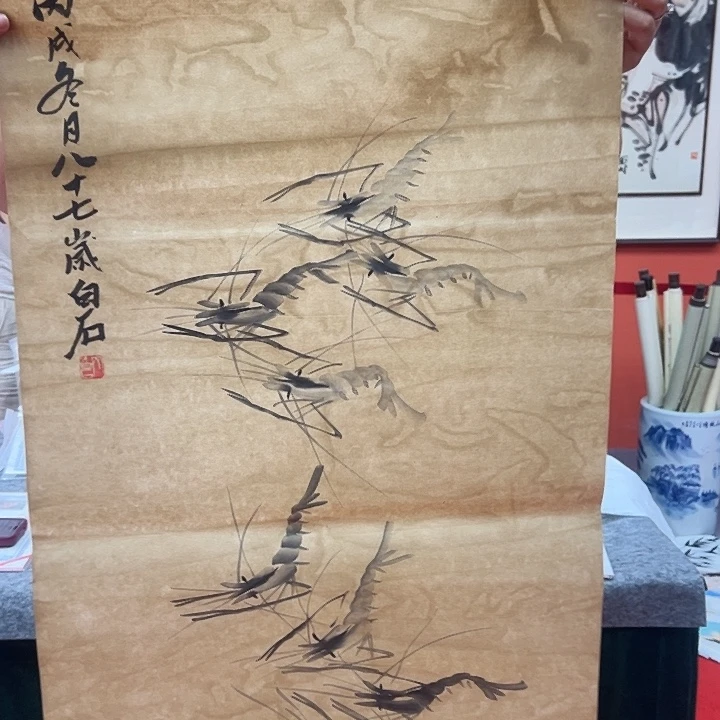 丙戌冬月八十七岁白石